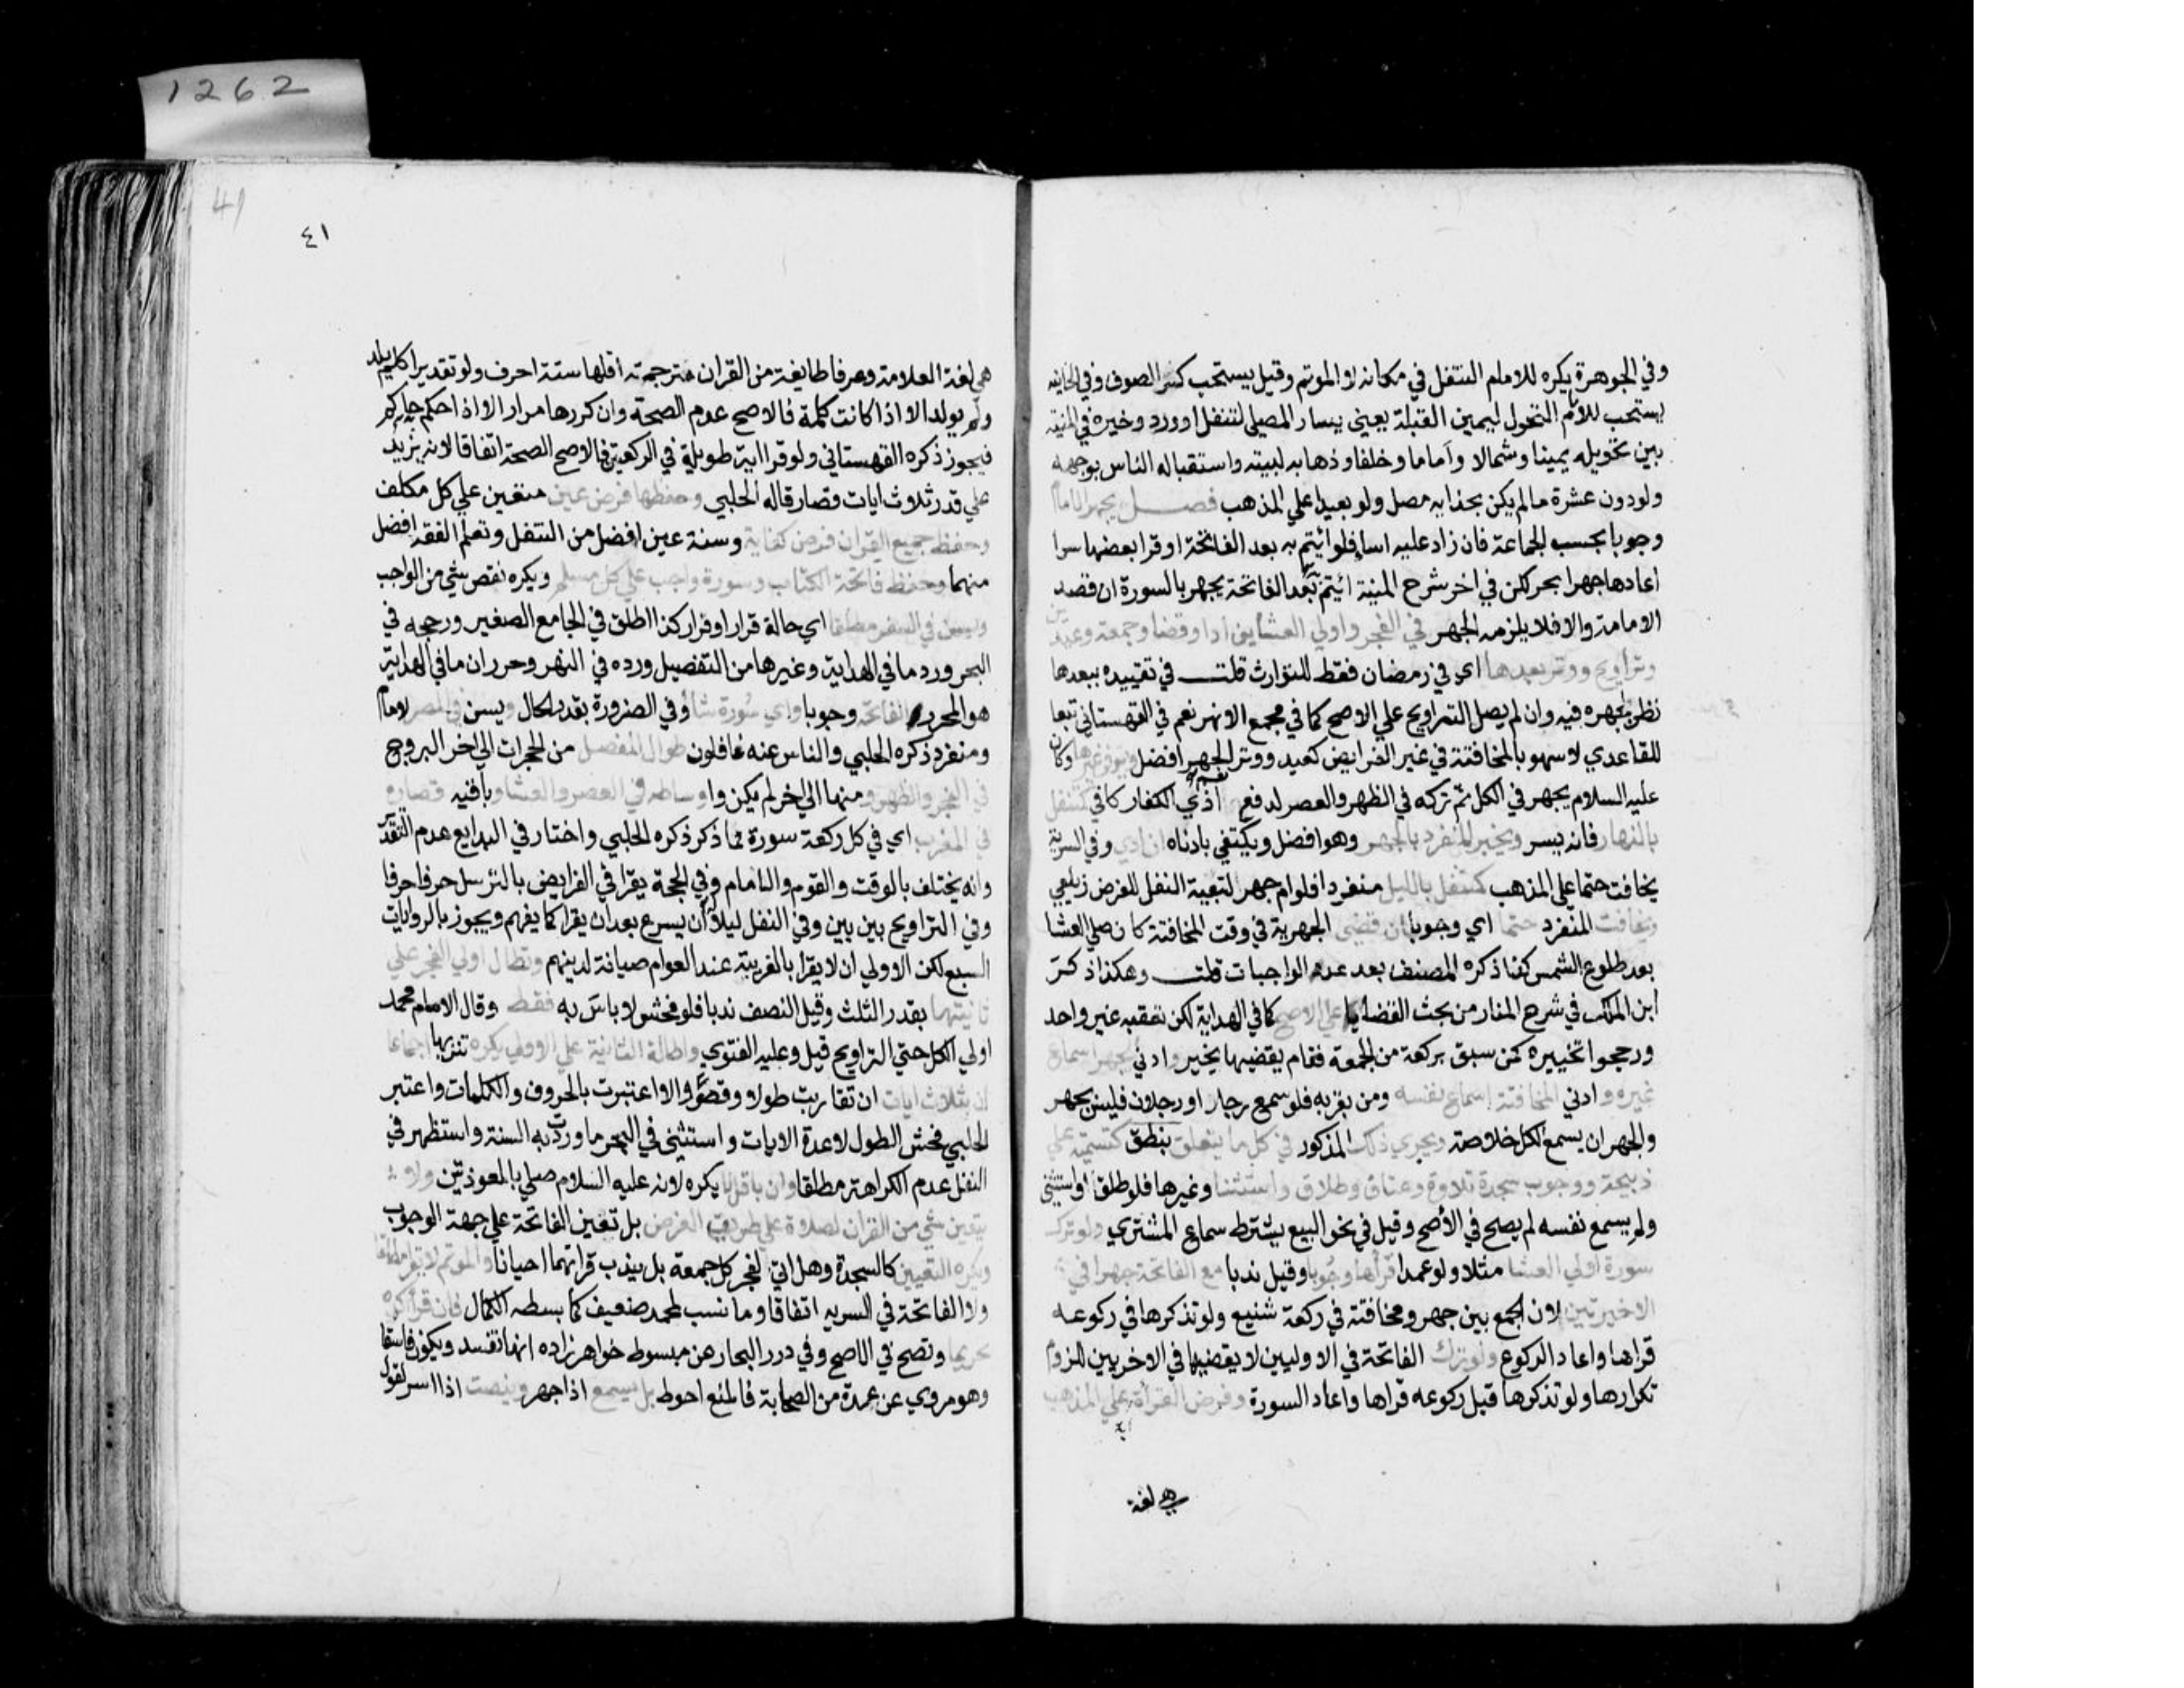 1262
وفي الجوهرة يكره للامام التنفل في مكانه لا الموتم وقيل يستحب كسر الصوف وفي الخانيه
يستحب للامام التحول ليمين القبلة يعني يسار المصلي لتنفل او ورد وخيره في المنية
بين تحويله يمينا وشمالا واماما وخلفا وذهابه لبيته واستقباله الناس بوجهه
ولو دون عشرة مالم يكن بحذايه مصل ولو بعيدا علي المذهب فصل يجهر الامام
وجوبا بحسب الجماعة فان زاد عليه اسا فلو ائتم به بعد الفاتحة او قرا بعضها سرا
اعادها جهرا بحر لكن في اخر شرح المنية ائتم به بعد الفاتحة يجهر بالسورة ان قصد
الامامة والا فلا يلزمه الجهر في الفجر واولي العشايين ادا وقضا وجمعة وعيدين
وتراويح ووتر بعدها اي في رمضان فقط للتوارث قلت في تقييده ببعدها
نظر لجهره فيه وان لم يصل التراويح علي الاصح كما في مجمع الانهر نعم في القهستاني تبعا
للقاعدي لا سهو بالمخافتة في غير الفرايض كعيد ووتر نعم الجهر افضل ويسر في غيرها وكان
عليه السلام يجهر في الكل ثم تركه في الظهر والعصر لدفع اذي الكفار كافي كمتنفل
بالنهار فانه يسر ويخير المنفرد بالجهر وهو افضل ويكتفي بادناه ان ادي وفي السرية
يخافت حتما علي المذهب كمتنفل بالليل منفردا فلو ام جهر لتبعية النفل للفرض زيلعي
ويخافت المنفرد حتما اي وجوبا ان قضي الجهرية في وقت المخافتة كان صلي العشا
بعد طلوع الشمس كذا ذكره المصنف بعد عد الواجبات قلت وهكذا ذكره
ابن الملك في شرح المنار من بحث القضا علي الاصح كما في الهداية لكن تعقبه غير واحد
ورجحوا تخييره كمن سبق بركعة من الجمعة فقام يقضيها يخير وادني الجهر اسماع
غيره وادني المخافتة اسماع نفسه ومن بقربه فلو سمع رجل او رجلان فليس بجهر
والجهر ان يسمع الكل خلاصة ويجري ذلك المذكور في كل ما يتعلق بنطق كتسمية علي
ذبيحة ووجوب سجدة تلاوة وعتاق وطلاق واستثنا وغيرها فلو طلق او استثني
ولم يسمع نفسه لم يصح في الأصح وقيل في نحو البيع يشترط سماع المشتري ولو ترك
سورة اولي العشا مثلا ولو عمدا قرأها وجوبا وقيل ندبا مع الفاتحة جهرا في
الاخيرتين لان الجمع بين جهر ومخافتة في ركعة شنيع ولو تذكرها في ركوعه
قراها واعاد الركوع ولو ترك الفاتحة في الاوليين لا يقضيها في الاخريين للزوم
تكرارها ولو تذكرها قبل ركوعه قراها واعاد السورة وفرض القرأة علي المذهب
اية
هي لغة
41
٤١
هي لغة العلامة وعرفا طايفة من القران مترجمة اقلها ستة احرف ولو تقديرا كلم يلد
ولم يولد الا اذا كانت كلمة فالاصح عدم الصحة وان كررها مرارا الا اذا حكم حاكم
فيجوز ذكره القهستاني ولو قرا اية طويلة في الركعتين فالاصح الصحة اتفاقا لانه يزيد
علي قدر ثلاث ايات قصار قاله الحلبي وحفظها فرض عين متعين علي كل مكلف
وحفظ جميع القران فرض كفاية وسنة عين افضل من التنفل وتعلم الفقه افضل
منهما وحفظ فاتحة الكتاب وسورة واجب علي كل مسلم ويكره نقص شي من الواجب
ويسن في السفر مطلقا اي حالة قرار او فرار كذا اطلق في الجامع الصغير ورجحه في
البحر ورد ما في الهداية وغيرها من التفصيل ورده في النهر وحرر ان ما في الهداية
هو المحرر الفاتحة وجوبا واي سورة شا وفي الضرورة بقدر الحال ويسن في الحضر لامام
ومنفرد ذكره الحلبي والناس عنه غافلون طوال المفصل من الحجرات الي اخر البروج
في الفجر والظهر ومنها الي اخر لم يكن واوساطه في العصر والعشا وباقيه قصاره
في المغرب اي في كل ركعة سورة مما ذكر ذكره الحلبي واختار في البدايع عدم التقدير
وانه يختلف بالوقت والقوم والامام وفي الحجة يقرا في الفرايض بالترسل حرفا حرفا
وفي التراويح بين بين وفي النفل ليلا له أن يسرع بعد ان يقرا كما يفهم ويجوز بالروايات
السبع لكن الاولي ان لا يقرا بالغريبة عند العوام صيانة لدينهم وتطال اولي الفجر علي
ثانيتها بقدر الثلث وقيل النصف ندبا فلو فحش لا باس به فقط وقال الامام محمد
اولي الكل حتي التراويح قيل وعليه الفتوي واطالة الثانية علي الاولي يكره تنزيها اجماعا
ان بثلاث ايات ان تقاربت طولا وقصرا والا اعتبرت بالحروف والكلمات واعتبر
الحلبي فحش الطول لا عدة الايات واستثني في البحر ما وردت به السنة واستظهر في
النفل عدم الكراهة مطلقا وان باقل لا يكره لانه عليه السلام صلي بالمعوذتين ولا
يتعين شي من القران لصلاة علي طريق الفرض بل تعين الفاتحة علي جهة الوجوب
ويكره التعيين كالسجدة وهل اتي لفجر كل جمعة بل يندب قراتهما احيانا والموتم لا يقرا مطلقا
ولا الفاتحة في السريه اتفاقا وما نسب لمحمد ضعيف كما بسطه الكمال فان قرأ كره
تحريما وتصح في الاصح وفي درر البحار عن مبسوط خواهر زاده انها تفسد ويكون فاسقا
وهو مروي عن عدة من الصحابة فالمنع احوط بل يسمع اذا جهر وينصت اذا اسر لقول